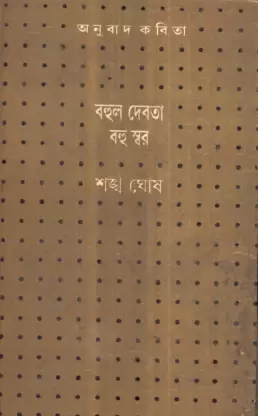 অনুবাদ কবিতা
বহুল দেবতা
বহু স্বর
শঙ্খ ঘোষ